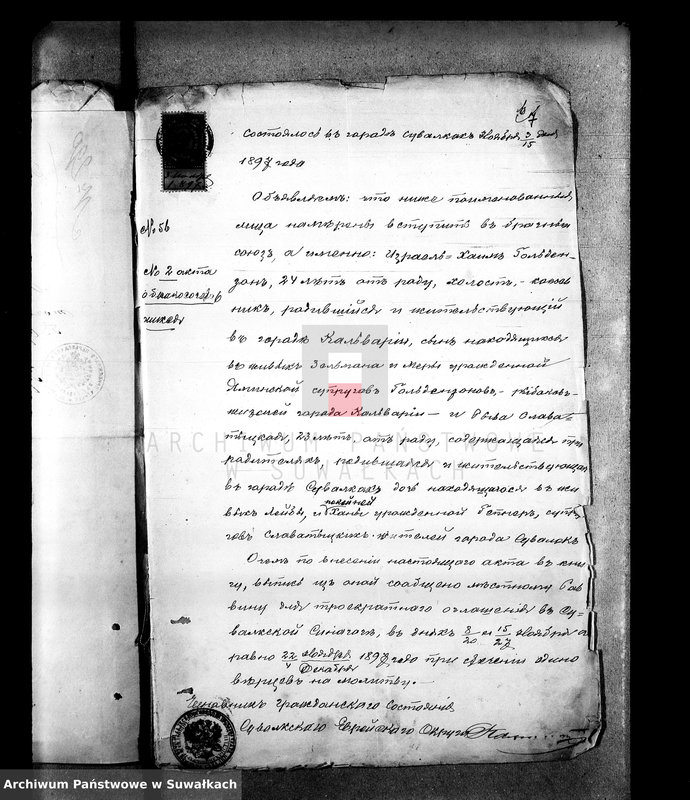 состоялось въ городѣ Сувалкахъ Ноября 3/15 дня
1897 года
Объявляемъ: что ниже поименованныя
лица намѣрены вступить въ брачный
№ 56
союзъ, а именно: Израель-Хаимъ Гольден-
№ 2 акта
зонъ, 24 лѣтъ отъ роду, холостъ,
никъ, родившійся и жительствующій
въ городѣ Кальваріи, сынъ находящихся
въ живыхъ Зельмана и Меры урожденной
супруговъ Гольдензоновъ,
города Кальваріи — и
23 лѣтъ отъ роду, содержащаяся при
родителяхъ, родившаяся и жительствующая
въ городѣ Сувалкахъ дочь находящагося въ жи-
покойной
выхъ Лейбы, и Ханы урожденной супру-
говъ Славатыцкихъ жителей города Сувалокъ
О чемъ по внесеніи настоящаго акта въ кни-
гу, выпись изъ оной сообщено мѣстному Рав-
вину для троекратнаго оглашенія въ Су-
валкской Синагогѣ, въ дняхъ 8/20 и 15/27 Ноября а
равно 22 Ноября/4 Декабря 1897 года при стеченіи
на молитву.
Чиновникъ Гражданскаго Состоянія
Сувалкскаго Еврейскаго Округа
ARCHIWUM PAŃSTWOWE
W SUWAŁKACH
Archiwum Państwowe w Suwałkach